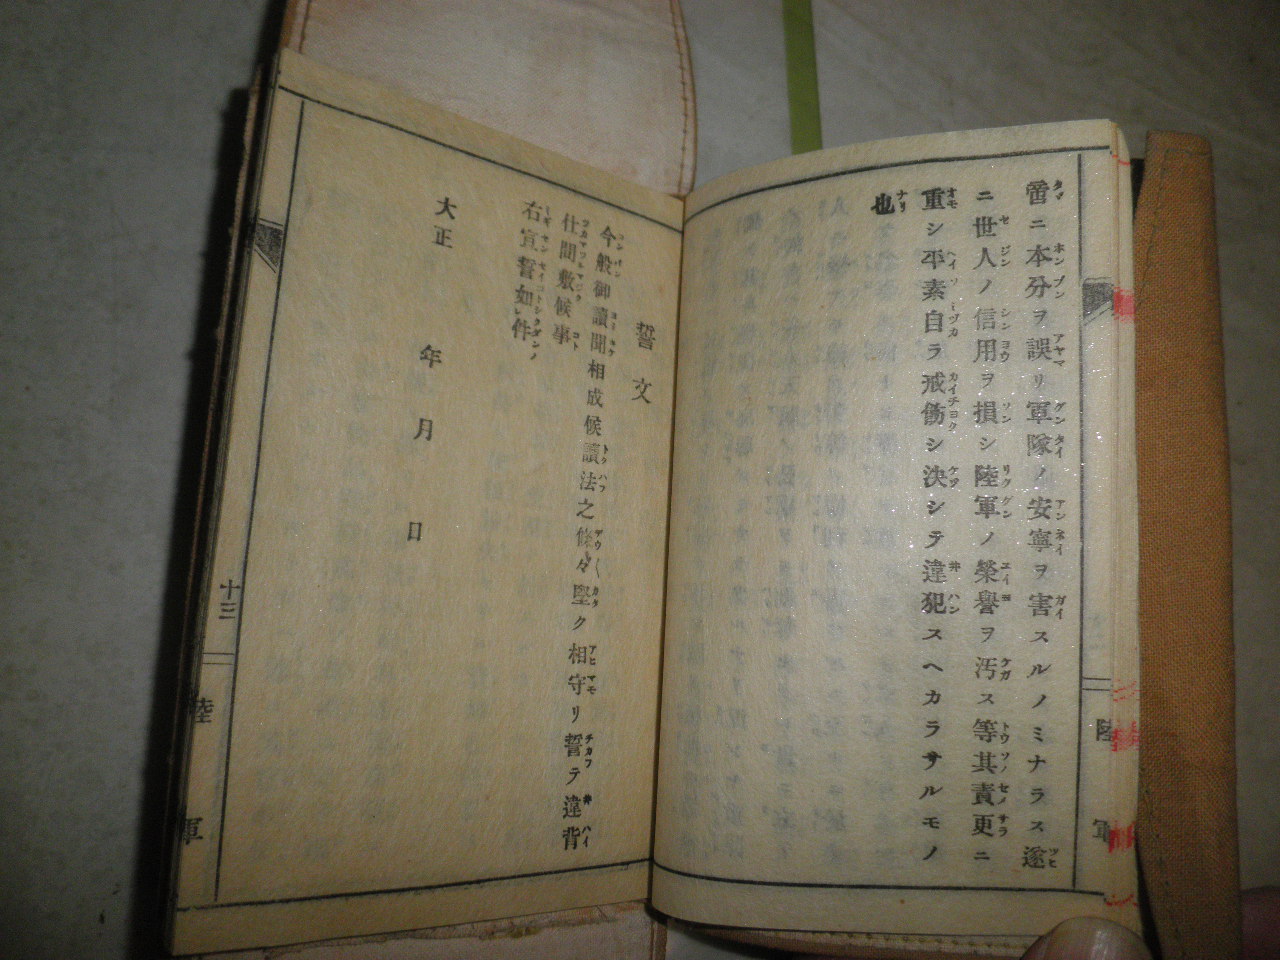 啻ニ本分ヲ誤リ軍隊ノ安寧ヲ害スルノミナラス遂
ニ世人ノ信用ヲ損シ陸軍ノ榮譽ヲ汚ス等其責更ニ
重シ平素自ラ戒飭シ決シテ違犯スヘカラサルモノ
也
陸軍
誓文
今般御讀聞相成候讀法之條々堅ク相守リ誓テ違背
仕間敷候事
右宣誓如件
大正 年 月 日
十三
陸軍